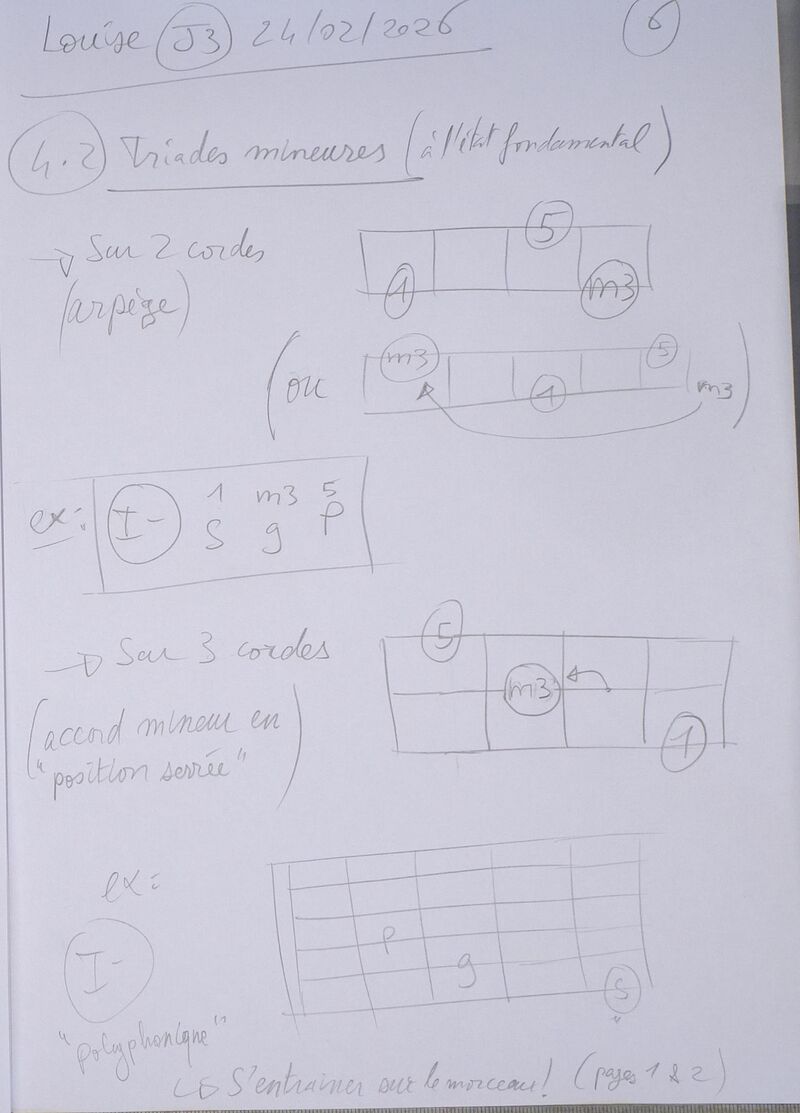 Louise J3 24/02/2026 6
4.2 Triades mineures (à l'état fondamental)
→ Sur 2 cordes
(arpège)
5
1 m3
(ou m3 5
1 m3)
ex: I- 1 m3 5
S g P
→ Sur 3 cordes
(accord mineur en
"position serrée")
5
m3
1
ex:
I-
"polyphonique"
P
g
S
↳ S'entrainer sur le morceau! (pages 1 & 2)